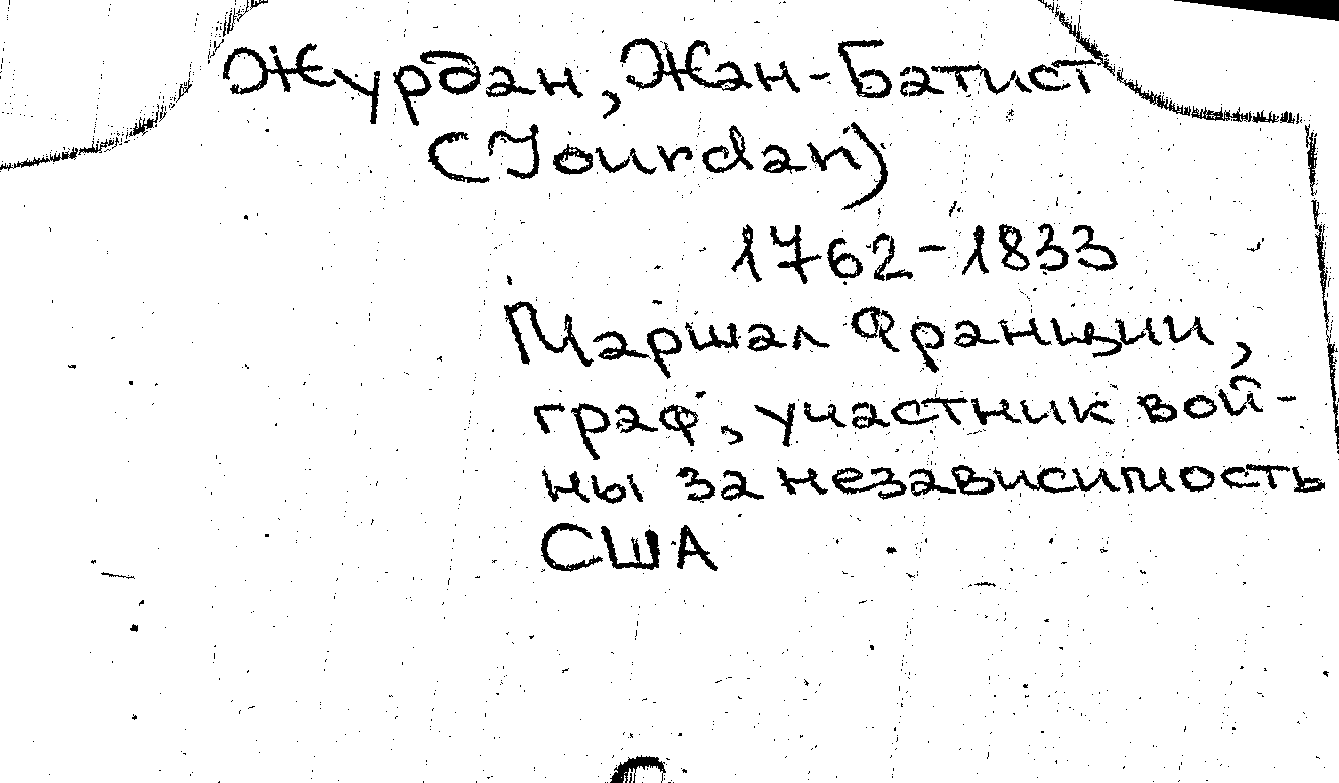 Журдан, Жан-Батист
(Jourdan)
1762-1833
Маршал Франции,
граф, участник вой-
ны за независимость
США